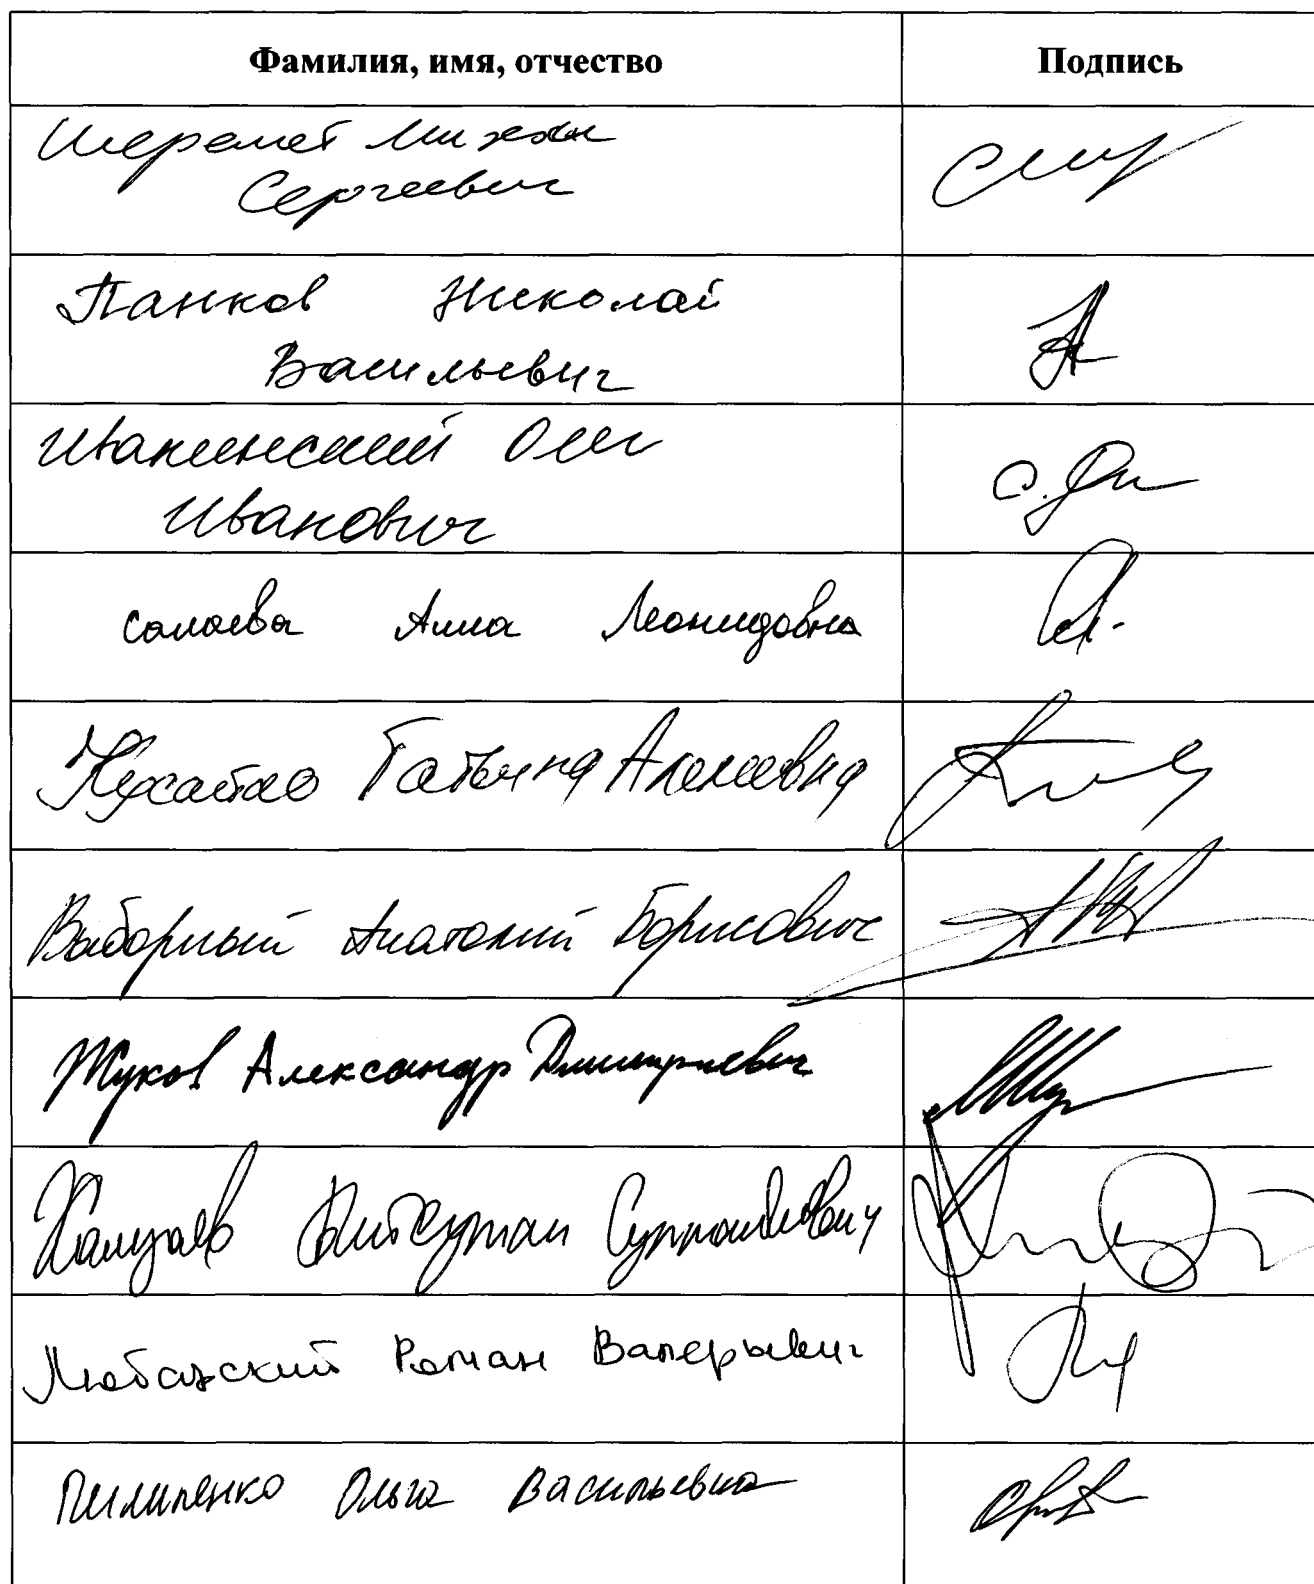 Фамилия, имя, отчество Подпись
Шеремет Михаил
Сергеевич
Панков Николай
Васильевич
Иванинский Олег
Иванович
Салаева Алла Леонидовна
Татьяна Алексеевна
Выборный Анатолий Борисович
Жуков Александр Дмитриевич
Хамзаев Бийсултан Султанбиевич
Любарский Роман Валерьевич
Пилипенко Ольга Васильевна